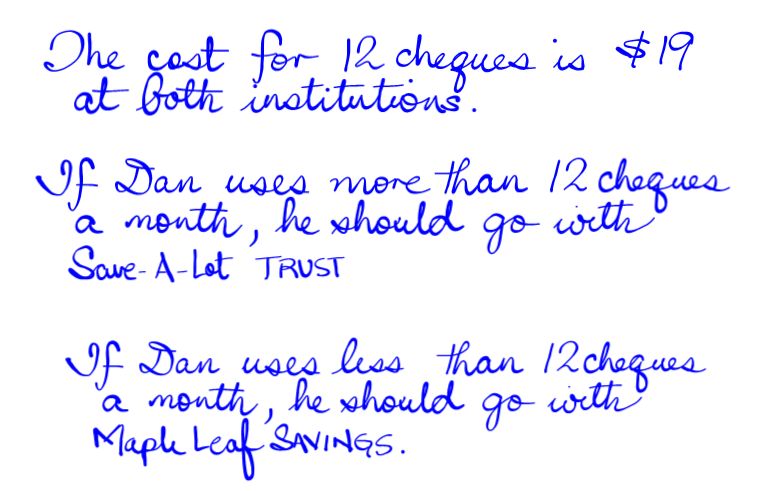 The cost for 12 cheques is $19
at both institutions.
If Dan uses more than 12 cheques
a month, he should go with
Save-A-Lot TRUST
If Dan uses less than 12 cheques
a month, he should go with
Maple Leaf SAVINGS.